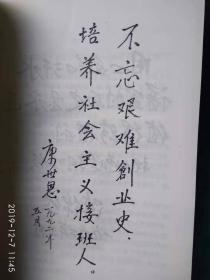 不忘艰难創业史，
培养社会主义接班人。
康世恩
一九九二年
五月
2019-12-7 11:45